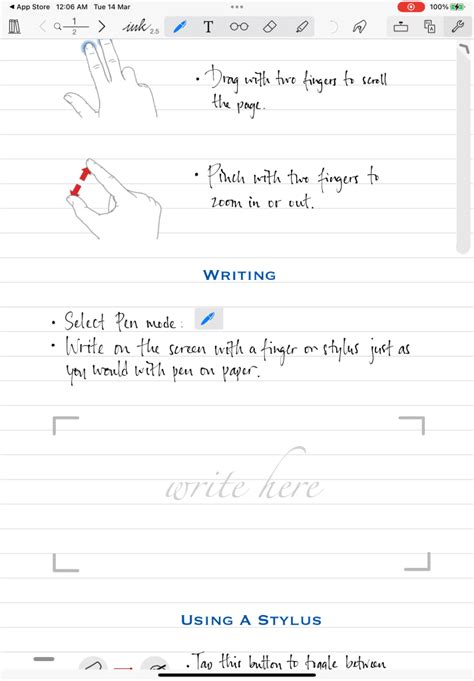 App Store 12:06 AM Tue 14 Mar 100%
1
2
ink 2.5
T
• Drag with two fingers to scroll
the page.
• Pinch with two fingers to
zoom in or out.
WRITING
• Select Pen mode:
• Write on the screen with a finger or stylus just as
you would with pen on paper.
write here
USING A STYLUS
• Tap this button to toggle between